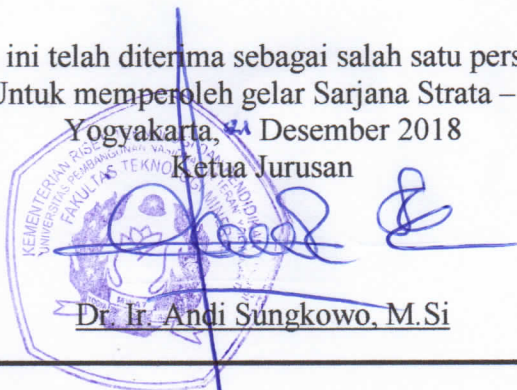 ini telah diterima sebagai salah satu pers
Untuk memperoleh gelar Sarjana Strata –
Yogyakarta, 21 Desember 2018
Ketua Jurusan
KEMENTERIAN RISET
UNIVERSITAS PEMBANGUNAN NASIONAL
FAKULTAS TEKNOLOGI
Dr. Ir. Andi Sungkowo, M.Si